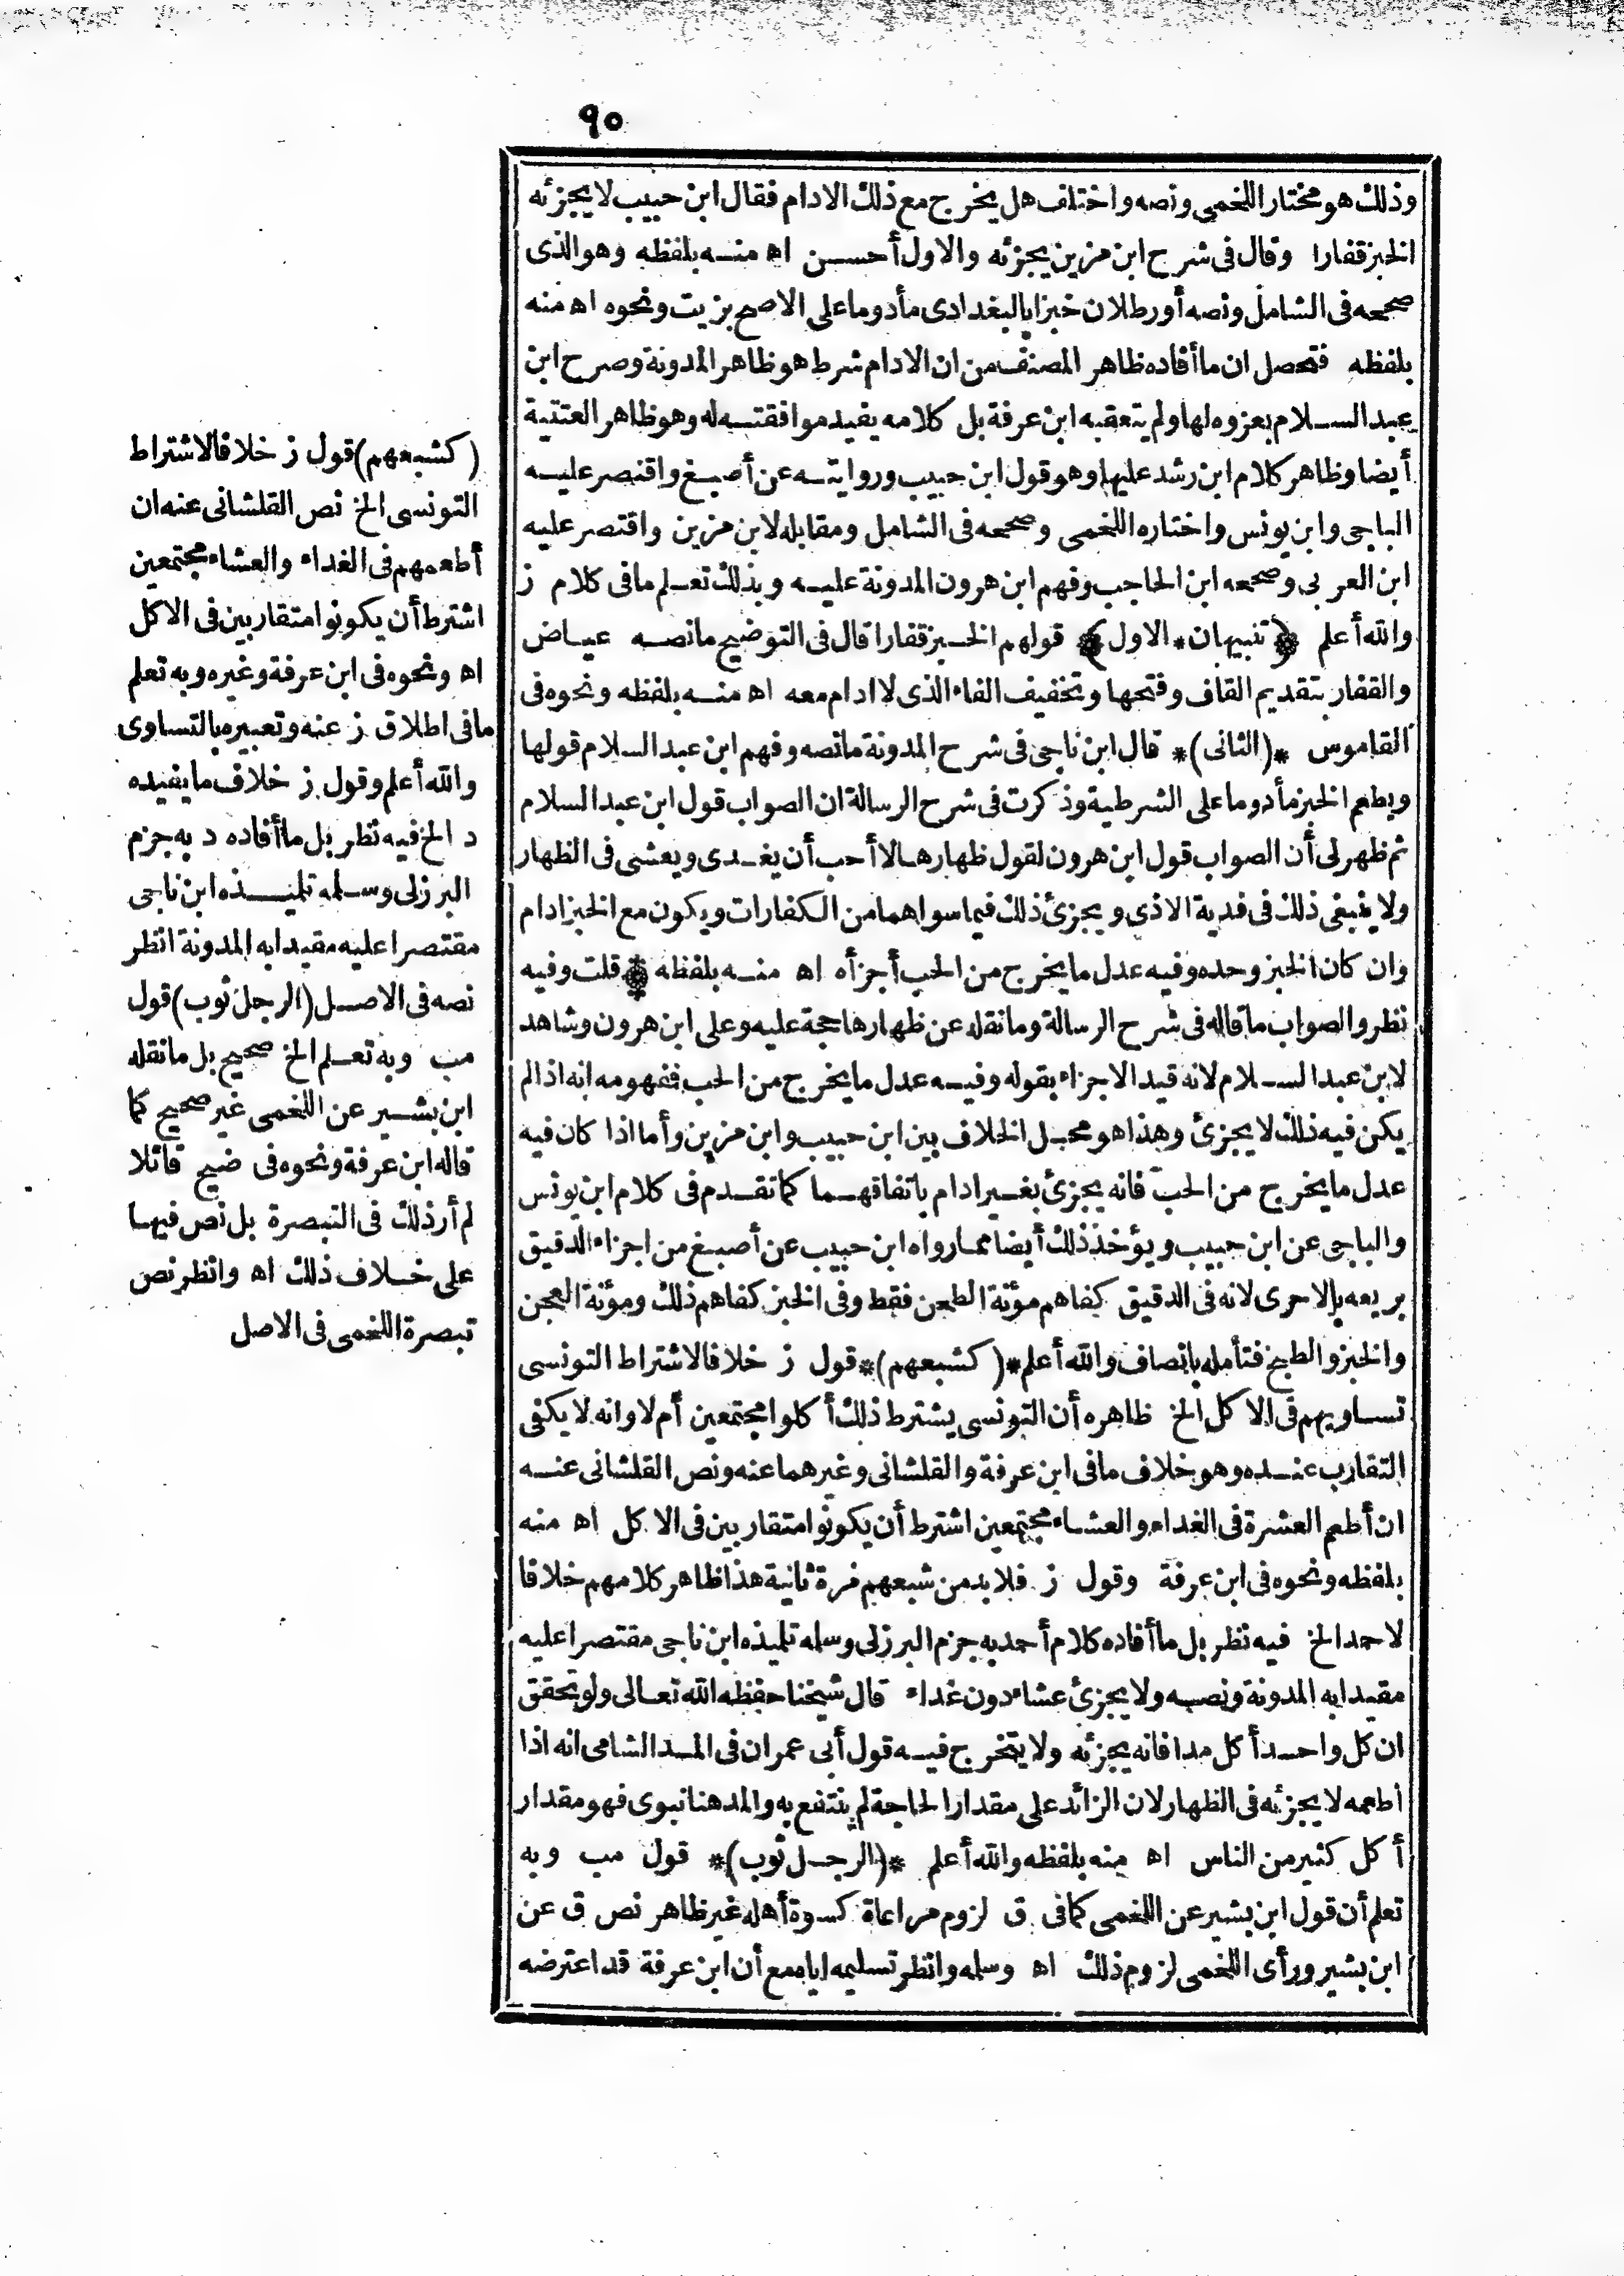 ٩٠
وذلك هو مختار اللخمي ونصه واختلف هل يخرج مع ذلك الادام فقال ابن حبيب لا يجزئه
الخبز قفارا وقال في شرح ابن مزين يجزئه والاول أحسن اه منه بلفظه وهو الذى
صححه في الشامل ونصه أو رطلان خبزا بالبغدادى مأدوما على الاصح بزيت ونحوه اه منه
بلفظه فتحصل ان ما أفاده ظاهر المصنف من ان الادام شرط هو ظاهر المدونة وصرح ابن
عبد السلام بعزوه لها ولم يتعقبه ابن عرفة بل كلامه يفيد موافقته له وهو ظاهر العتبية
أيضا وظاهر كلام ابن رشد عليها وهو قول ابن حبيب وروايته عن أصبغ واقتصر عليه
الباجي وابن يونس واختاره اللخمي وصححه في الشامل ومقابله لابن مزين واقتصر عليه
ابن العربي وصححه ابن الحاجب وفهم ابن هرون المدونة عليه وبذلك تعلم ما في كلام ز
والله أعلم ﴿تنبيهان * الاول﴾ قولهم الخبز قفارا قال في التوضيح ما نصه عياض
والقفار بتقديم القاف وفتحها وتخفيف الفاء الذى لا ادام معه اه منه بلفظه ونحوه في
القاموس *(الثاني)* قال ابن ناجي في شرح المدونة ما نصه وفهم ابن عبد السلام قولها
ويطعم الخبز مأدوما على الشرطية وذكرت في شرح الرسالة ان الصواب قول ابن عبد السلام
ثم ظهر لى أن الصواب قول ابن هرون لقول ظهارها لا أحب أن يغدى ويعشى في الظهار
ولا ينبغي ذلك في فدية الاذى ويجزئ ذلك فيما سواهما من الكفارات ويكون مع الخبز ادام
وان كان الخبز وحده وفيه عدل ما يخرج من الحب أجزأه اه منه بلفظه ﴿ قلت وفيه
نظر والصواب ما قاله في شرح الرسالة وما نقله عن ظهارها حجة عليه وعلى ابن هرون وشاهد
لابن عبد السلام لانه قيد الاجزاء بقوله وفيه عدل ما يخرج من الحب ففهومه انه اذا لم
يكن فيه ذلك لا يجزئ وهذا هو محل الخلاف بين ابن حبيب وابن مزين وأما اذا كان فيه
عدل ما يخرج من الحبّ فانه يجزئ بغير ادام باتفاقهما كما تقدم في كلام ابن يونس
والباجي عن ابن حبيب ويؤخذ ذلك أيضا مما رواه ابن حبيب عن أصبغ من اجزاء الدقيق
بريعه بالاحرى لانه في الدقيق كفاهم مؤنة الطحن فقط وفي الخبز كفاهم ذلك ومؤنة العجن
والخبز والطبخ فتأمله بانصاف والله أعلم *(كشبعهم)* قول ز خلافا لاشتراط التونسي
تساويهم في الاكل الخ ظاهره أن التونسي يشترط ذلك أكلوا مجتمعين أم لا وانه لا يكفي
التقارب عنده وهو خلاف ما في ابن عرفة والقلشاني وغيرهما عنه ونص القلشاني عنه
ان أطعم العشرة في الغداء والعشاء مجتمعين اشترط أن يكونوا متقاربين في الاكل اه منه
بلفظه ونحوه في ابن عرفة وقول ز فلا بد من شبعهم مرة ثانية هذا ظاهر كلامهم خلافا
لاحمد الخ فيه نظر بل ما أفاده كلام أحمد به جزم البرزلى وسلمه تلميذه ابن ناجي مقتصرا عليه
مقيدا به المدونة ونصه ولا يجزئ عشاء دون غداء قال شيخنا حفظه الله تعالى ولو تحقق
ان كل واحد أكل مدا فانه يجزئه ولا يتخرج فيه قول أبي عمران في المد الشامي انه اذا
اطعمه لا يجزئه في الظهار لان الزائد على مقدار الحاجة لم ينتفع به والمد هنا نبوى فهو مقدار
أكل كثير من الناس اه منه بلفظه والله أعلم *(الرجل ثوب)* قول مب وبه
تعلم أن قول ابن بشير عن اللخمي كما في ق لزوم مراعاة كسوة أهله غير ظاهر نص ق عن
ابن بشير ورأى اللخمي لزوم ذلك اه وسلمه وانظر تسليمه اياه مع أن ابن عرفة قد اعترضه
(كشبعهم) قول ز خلافا لاشتراط
التونسي الخ نص القلشاني عنه ان
أطعمهم في الغداء والعشاء مجتمعين
اشترط أن يكونوا متقاربين في الاكل
اه ونحوه في ابن عرفة وغيره وبه تعلم
ما في اطلاق ز عنه وتعبيره بالتساوى
والله أعلم وقول ز خلاف ما يفيده
د الخ فيه نظر بل ما أفاده د به جزم
البرزلى وسلمه تلميذه ابن ناجي
مقتصرا عليه مقيدا به المدونة انظر
نصه في الاصل (الرجل ثوب) قول
مب وبه تعلم الخ صحيح بل ما نقله
ابن بشير عن اللخمي غير صحيح كما
قاله ابن عرفة ونحوه في ضيح قائلا
لم أر ذلك في التبصرة بل نص فيها
على خلاف ذلك اه وانظر نص
تبصرة اللخمي في الاصل